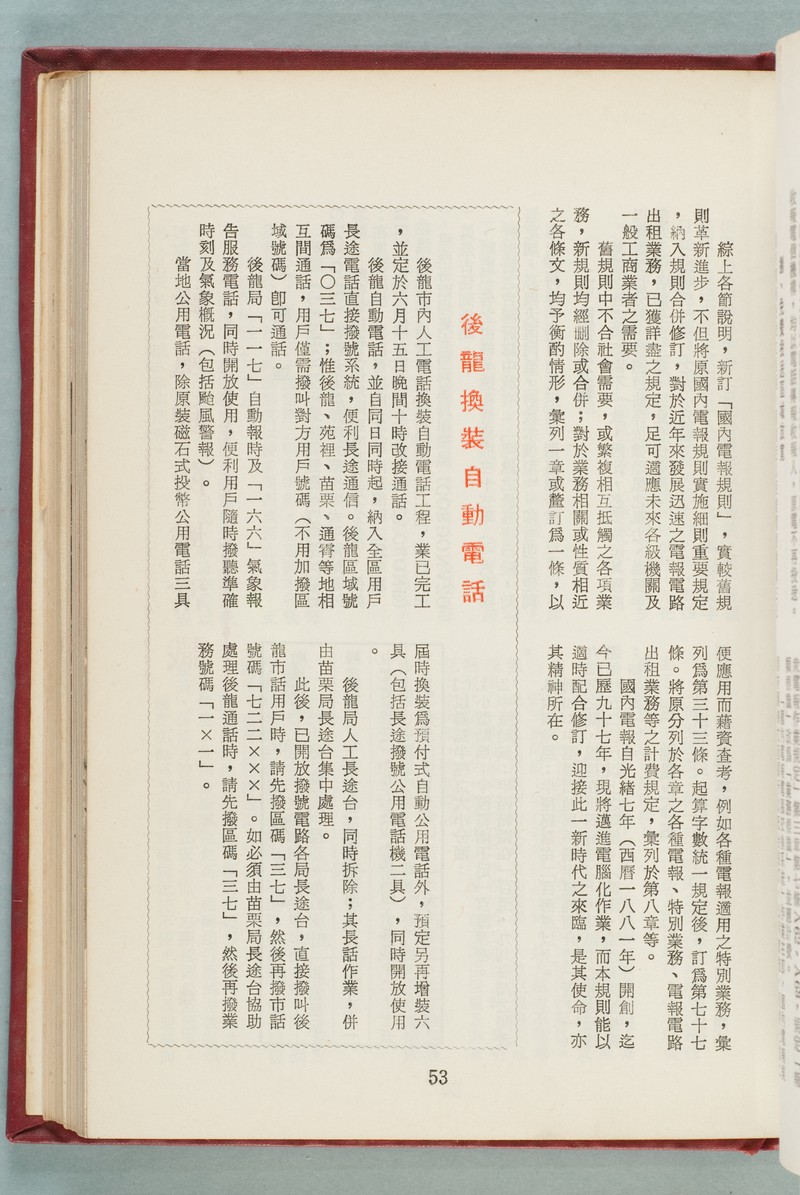 綜上各節說明，新訂「國內電報規則」，實較舊規
則革新進步，不但將原國內電報規則實施細則重要規定
，納入規則合併修訂，對於近年來發展迅速之電報電路
出租業務，已獲詳盡之規定，足可適應未來各級機關及
一般工商業者之需要。
舊規則中不合社會需要，或繁複相互抵觸之各項業
務，新規則均經刪除或合併；對於業務相關或性質相近
之各條文，均予衡酌情形，彙列一章或釐訂爲一條，以
便應用而藉資查考，例如各種電報適用之特別業務，彙
列爲第三十三條。起算字數統一規定後，訂爲第七十七
條。將原分列於各章之各種電報、特別業務、電報電路
出租業務等之計費規定，彙列於第八章等。
國內電報自光緒七年（西曆一八八一年）開創，迄
今已歷九十七年，現將邁進電腦化作業，而本規則能以
適時配合修訂，迎接此一新時代之來臨，是其使命，亦
其精神所在。
後龍換裝自動電話
後龍市內人工電話換裝自動電話工程，業已完工
，並定於六月十五日晚間十時改接通話。
後龍自動電話，並自同日同時起，納入全區用戶
長途電話直接撥號系統，便利長途通信。後龍區域號
碼爲「〇三七」；惟後龍、苑裡、苗栗、通霄等地相
互間通話，用戶僅需撥叫對方用戶號碼（不用加撥區
域號碼）卽可通話。
後龍局「一一七」自動報時及「一六六」氣象報
告服務電話，同時開放使用，便利用戶隨時撥聽準確
時刻及氣象概況（包括颱風警報）。
當地公用電話，除原裝磁石式投幣公用電話三具
屆時換裝爲預付式自動公用電話外，預定另再增裝六
具（包括長途撥號公用電話機二具），同時開放使用
。
後龍局人工長途台，同時拆除；其長話作業，併
由苗栗局長途台集中處理。
此後，已開放撥號電路各局長途台，直接撥叫後
龍市話用戶時，請先撥區碼「三七」，然後再撥市話
號碼「七二二×××」。如必須由苗栗局長途台協助
處理後龍通話時，請先撥區碼「三七」，然後再撥業
務號碼「一×一」。
53